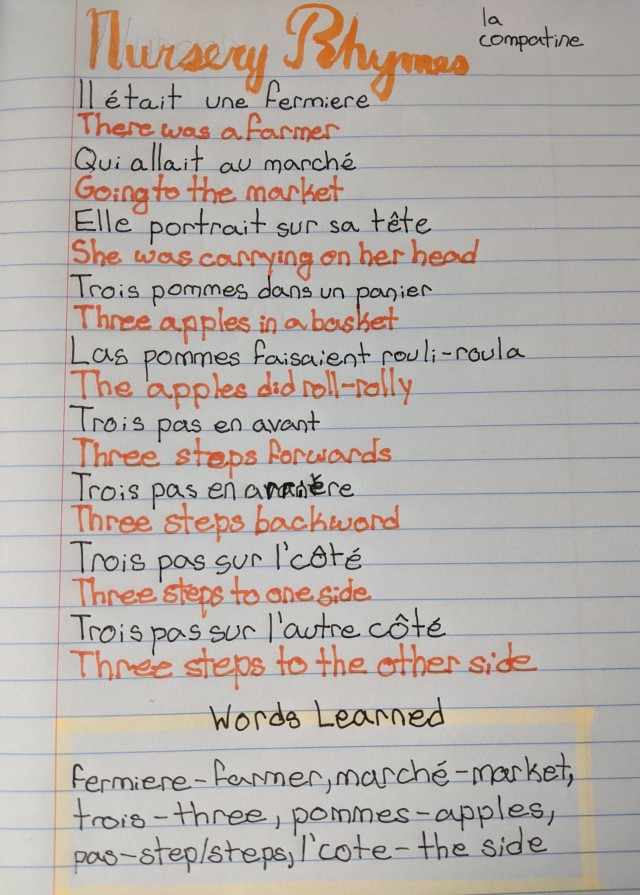 Nursery Rhymes
la
compatine
Il était une fermiere
There was a farmer
Qui allait au marché
Going to the market
Elle portrait sur sa tête
She was carrying on her head
Trois pommes dans un panier
Three apples in a basket
Las pommes faisaient rouli-roula
The apples did roll-rolly
Trois pas en avant
Three steps forwards
Trois pas en arrière
Three steps backward
Trois pas sur l'côté
Three steps to one side
Trois pas sur l'autre côté
Three steps to the other side
Words Learned
fermiere-farmer, marché-market,
trois-three, pommes-apples,
pas-step/steps, l'cote-the side